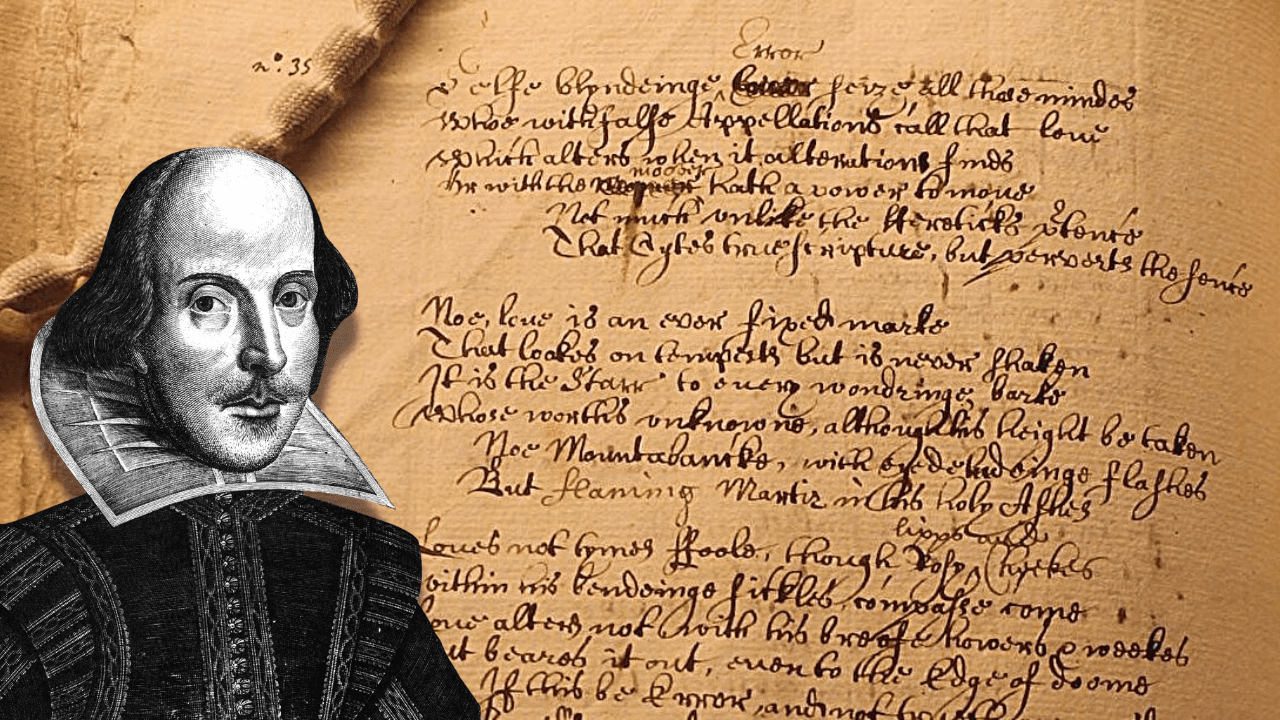 n°. 35
Error
Selfe blyndeinge seize all those mindes
Whoe with falſe Appellations call that loue
Which alters when it alterations finds
Or with the moover hath a power to moue
Not much vnlike the Hereticks p̄tence
That Cytes true ſcripture, but perverts the ſence
Noe, loue is an ever fixed marke
That lookes on tempests but is never ſhaken
It is the Starr to euery wondringe barke
Whose worths vnknowne, although his height be taken
Noe Mountabancke, with eyedeludeinge flaſhes
But flaming Martir in his holy Aſhes
lipps and
Loues not tymes Foole, though Roſy Cheekes
within his bendeinge ſickles compaſſe come
loue alters not with his breife howers & weekes
but beares it out, even to the Edge of doome
If this be Error, and not